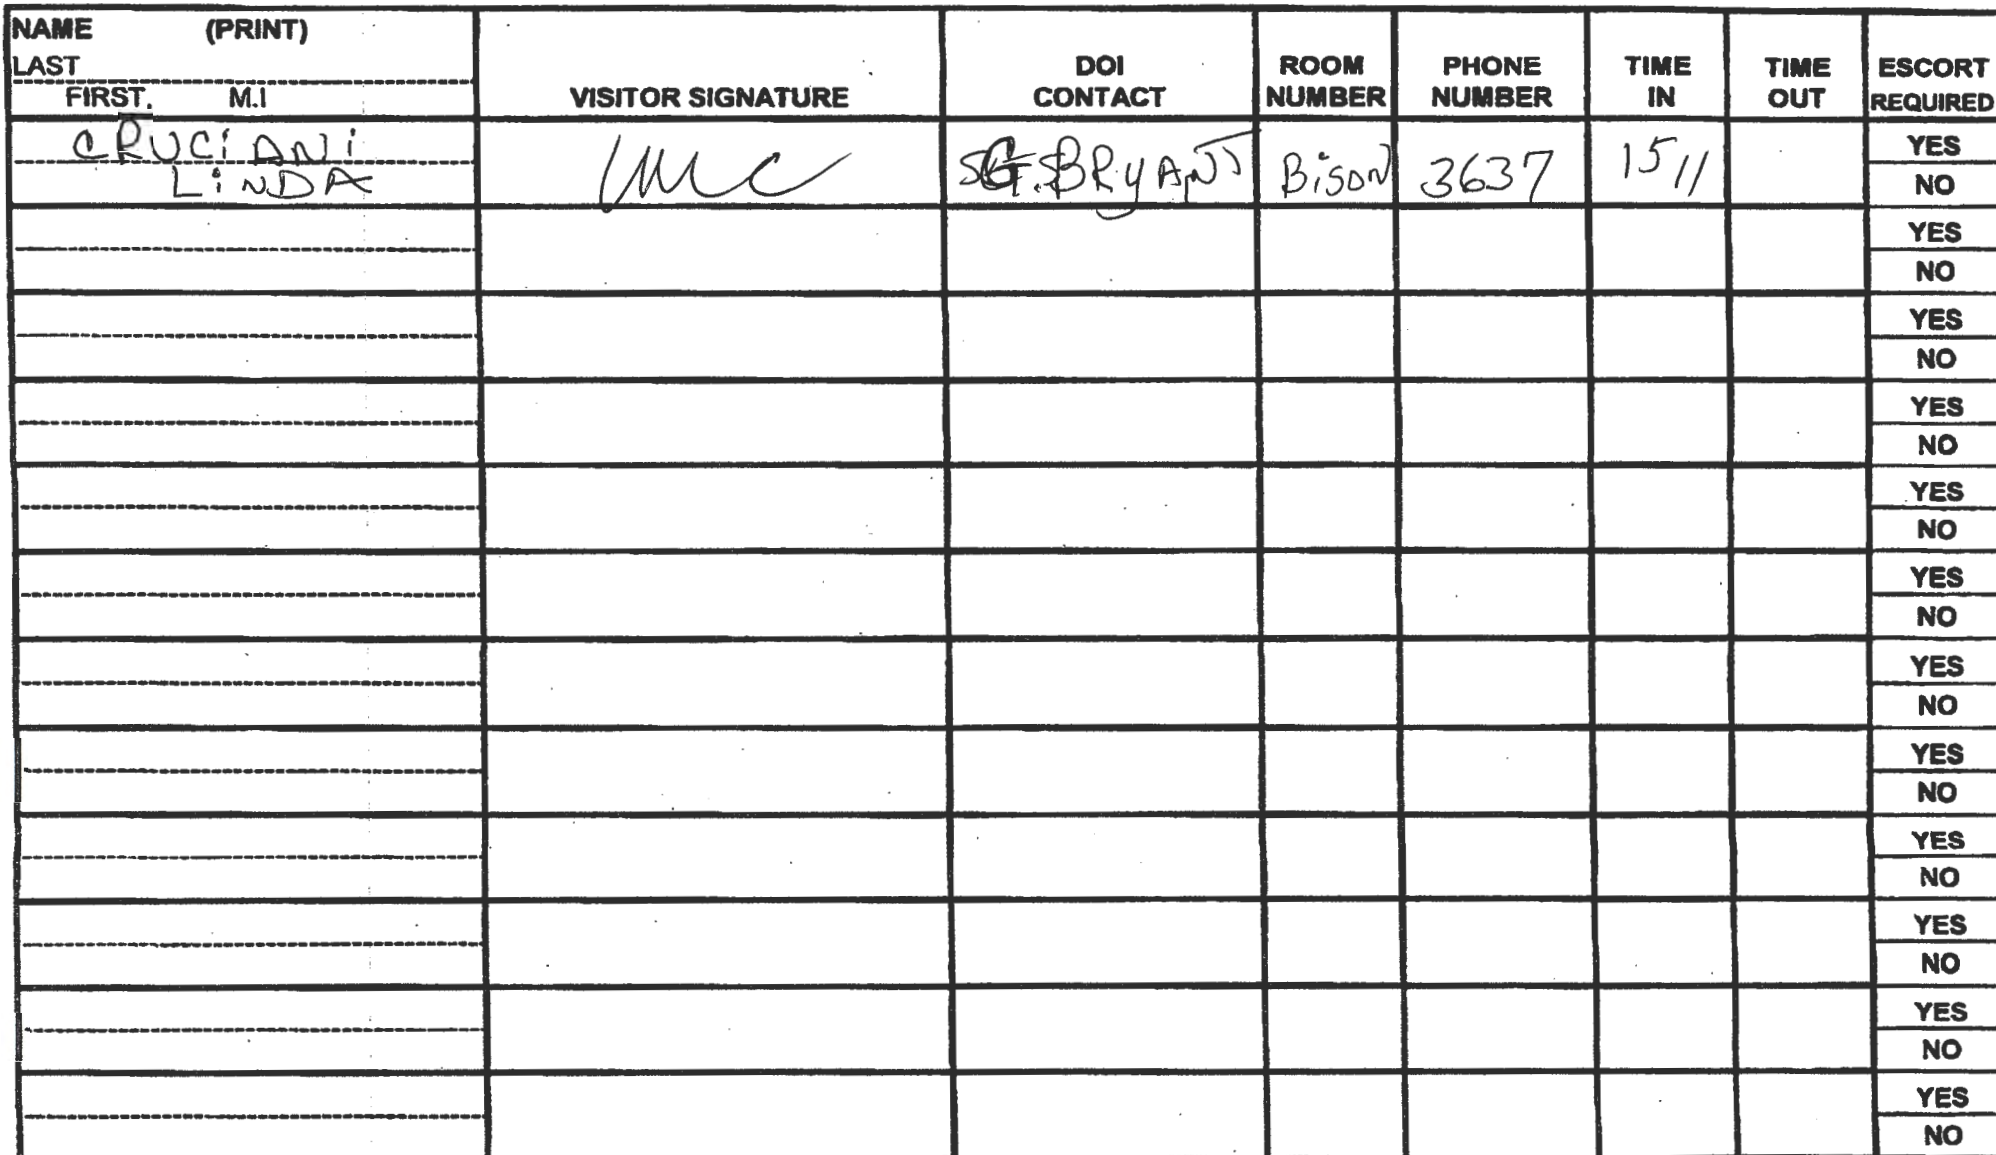 NAME (PRINT)
LAST
FIRST, M.I
VISITOR SIGNATURE
DOI CONTACT
ROOM NUMBER
PHONE NUMBER
TIME IN
TIME OUT
ESCORT REQUIRED
CRUCiANi
LiNDA
SGT. BRYANT
BisoN
3637
1511
YES
NO
YES
NO
YES
NO
YES
NO
YES
NO
YES
NO
YES
NO
YES
NO
YES
NO
YES
NO
YES
NO
YES
NO